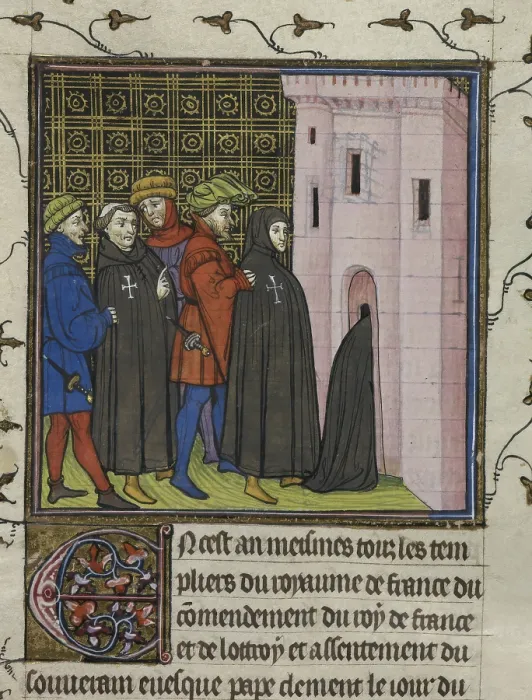 En cest an meismes touz les tem
pliers du royaume de france du
cōmendement du roy de france
et de lottroy et assentement du
souuerain euesque pape clement le iour du